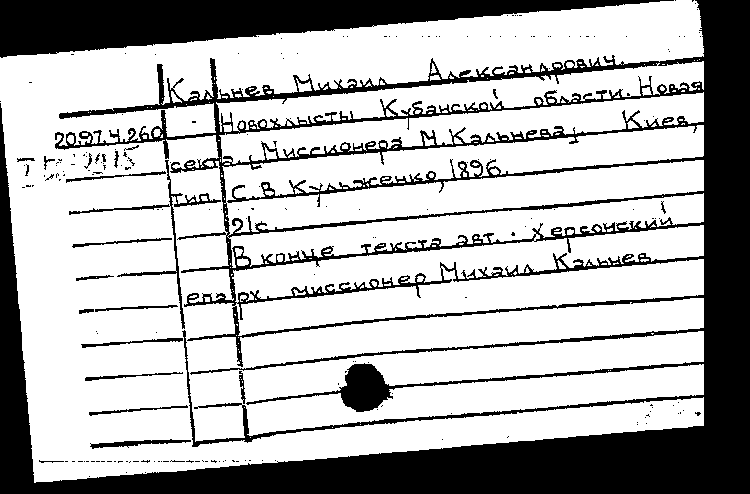 Кальнев, Михаил Александрович.
20.97.4.260 Новохлысты Кубанской области. Новая
секта. [Миссионера М. Кальнева]. Киев,
тип. С. В. Кульженко, 1896.
21с.
В конце текста авт.: Херсонский
епарх. миссионер Михаил Кальнев.